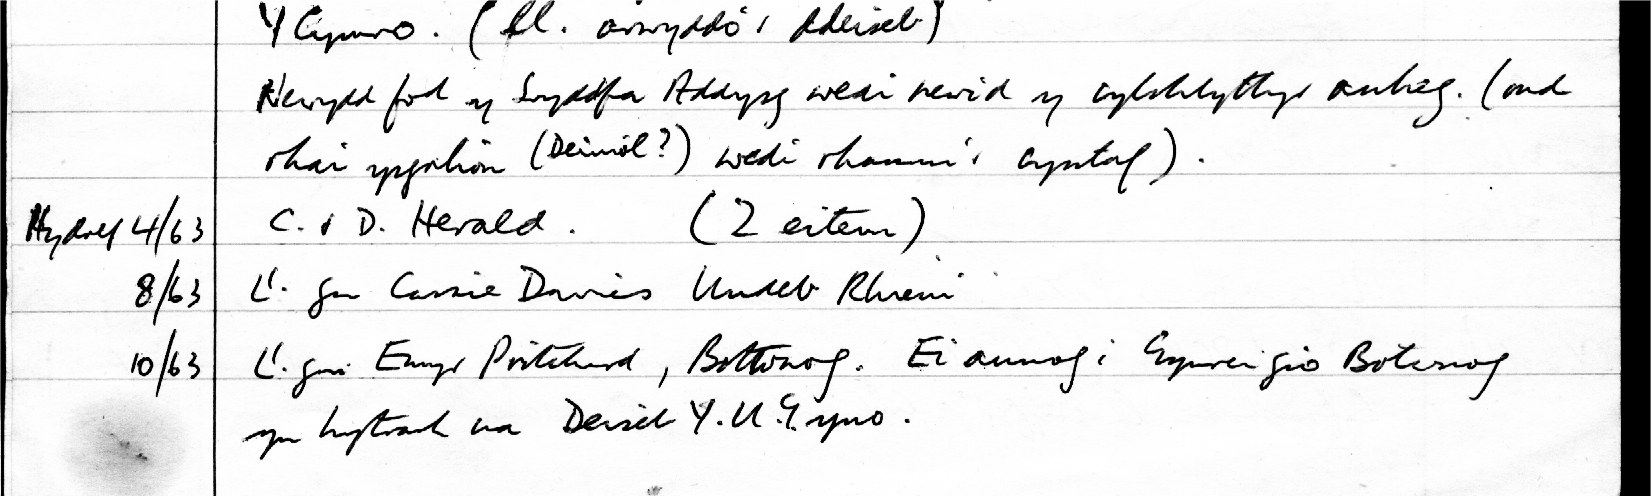 Y Cymro. (Ll. arwyddo'r ddeiseb)
Newydd fod y Swyddfa Addysg wedi newid y cylchlythyr anheg. (ond
rhai ysgolion (Deiniol?) wedi rhannu'r cyntaf).
Hydref 4/63 C. & D. Herald. (2 eitem)
8/63 Ll. gan Cassie Davies Undeb Rhieni
10/63 Ll. gan Emyr Pritchard, Bottwnog. Ei annog i Gymreigio Botwnog
yn hytrach na Deiseb Y.U.G. yno.